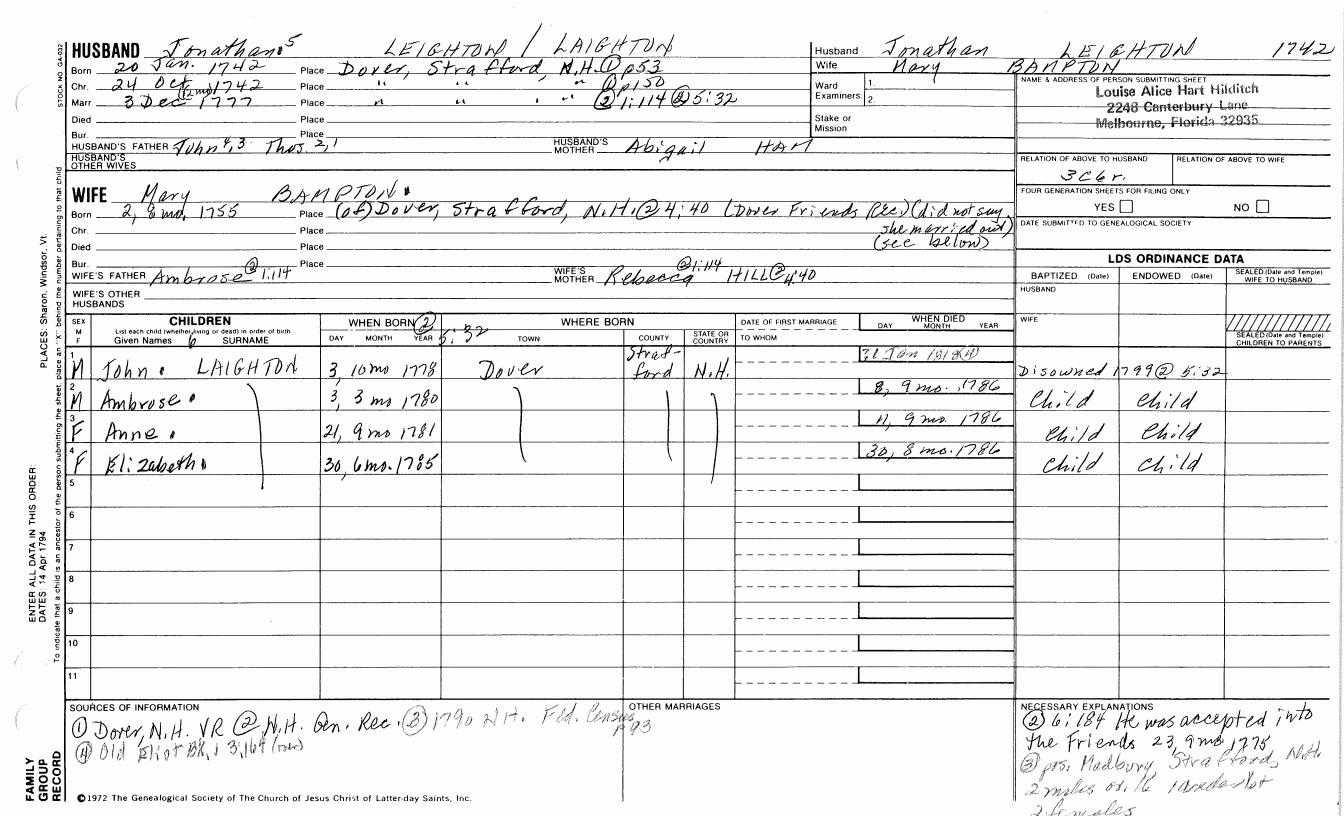 HUSBAND Jonathan 5 LEIGHTON / LAIGHTON
Born 20 Jan. 1742 Place Dover, Strafford, N.H. ① p53
Chr. 24 Oct 1742 Place " " " ① p150
Marr. 3 Dec (12 mo) 1777 Place " " " ② 1:114 ② 5:32
Died Place
Bur. Place
HUSBAND'S FATHER John 4,3 Thos. 2,1 HUSBAND'S MOTHER Abigail HAM
HUSBAND'S OTHER WIVES
Husband Jonathan LEIGHTON 1742
Wife Mary BAMPTON
Ward Examiners 1. 2.
Stake or Mission
NAME & ADDRESS OF PERSON SUBMITTING SHEET
Louise Alice Hart Hilditch
2248 Canterbury Lane
Melbourne, Florida 32935
RELATION OF ABOVE TO HUSBAND RELATION OF ABOVE TO WIFE
3C6r.
FOUR GENERATION SHEETS FOR FILING ONLY
YES NO
DATE SUBMITTED TO GENEALOGICAL SOCIETY
WIFE Mary BAMPTON
Born 2, 8 mo. 1755 Place (of) Dover, Strafford, N.H. @ 4:40 (Dover Friends Rec) (did not say
Chr. Place she married out)
Died Place (see below)
Bur. Place
WIFE'S FATHER Ambrose ② 1:114 WIFE'S MOTHER Rebecca ② 1:114 HILL ② 4:40
WIFE'S OTHER HUSBANDS
LDS ORDINANCE DATA
BAPTIZED (Date) ENDOWED (Date) SEALED (Date and Temple) WIFE TO HUSBAND
HUSBAND
WIFE
SEALED (Date and Temple) CHILDREN TO PARENTS
SEX M F CHILDREN WHEN BORN ② 5:32 WHERE BORN DATE OF FIRST MARRIAGE WHEN DIED
List each child (whether living or dead) in order of birth
Given Names SURNAME DAY MONTH YEAR TOWN COUNTY STATE OR COUNTRY TO WHOM DAY MONTH YEAR
1 M John LAIGHTON 3, 10 mo 1778 Dover Strafford N.H. Jan Disowned 1799 @ 5:32
2 M Ambrose 3, 3 mo 1780 8, 9 mo. 1786 Child Child
3 F Anne 21, 9 mo 1781 11, 9 mo. 1786 Child Child
4 F Elizabeth 30, 6 mo. 1785 30, 8 mo. 1786 Child Child
5
6
7
8
9
10
11
SOURCES OF INFORMATION
① Dover, N.H. VR ② N.H. Gen. Rec. ③ 1790 N.H. Fed. Census p93
④ Old Eliot Bk. 3,164
OTHER MARRIAGES
NECESSARY EXPLANATIONS
② 6:184 He was accepted into
the Friends 23, 9 mo 1775
③ prs. Madbury, Strafford, N.H.
2 males ov. 16
2 females
©1972 The Genealogical Society of The Church of Jesus Christ of Latter-day Saints, Inc.
STOCK NO. GA-032
To indicate that a child is an ancestor of the person submitting the sheet, place an "X" behind the number pertaining to that child
PLACES: Sharon, Windsor, Vt.
ENTER ALL DATA IN THIS ORDER
DATES: 14 Apr 1794
FAMILY GROUP RECORD